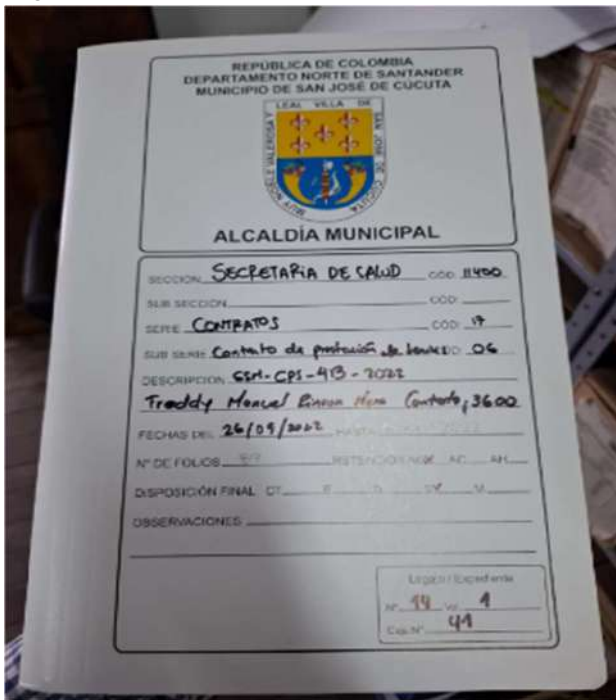 REPÚBLICA DE COLOMBIA
DEPARTAMENTO NORTE DE SANTANDER
MUNICIPIO DE SAN JOSÉ DE CÚCUTA
MUY NOBLE VALEROSA Y LEAL VILLA DE SAN JOSE DE CUCUTA
ALCALDÍA MUNICIPAL
SECCIÓN SECRETARIA DE SALUD COD 11400
SUB SECCIÓN COD
SERIE CONTRATOS COD 17
SUB SERIE Contrato de prestación de 06
DESCRIPCIÓN SSM-CPS-413-2022
Freddy Manuel Rincon 3600
FECHAS DEL 26/09/2022 HASTA 2022
N° DE FOLIOS RETENCIÓN AG AC AH
DISPOSICIÓN FINAL CT E D M
OBSERVACIONES
Legajo / Expediente
N° Vol 1
Caja N° 41